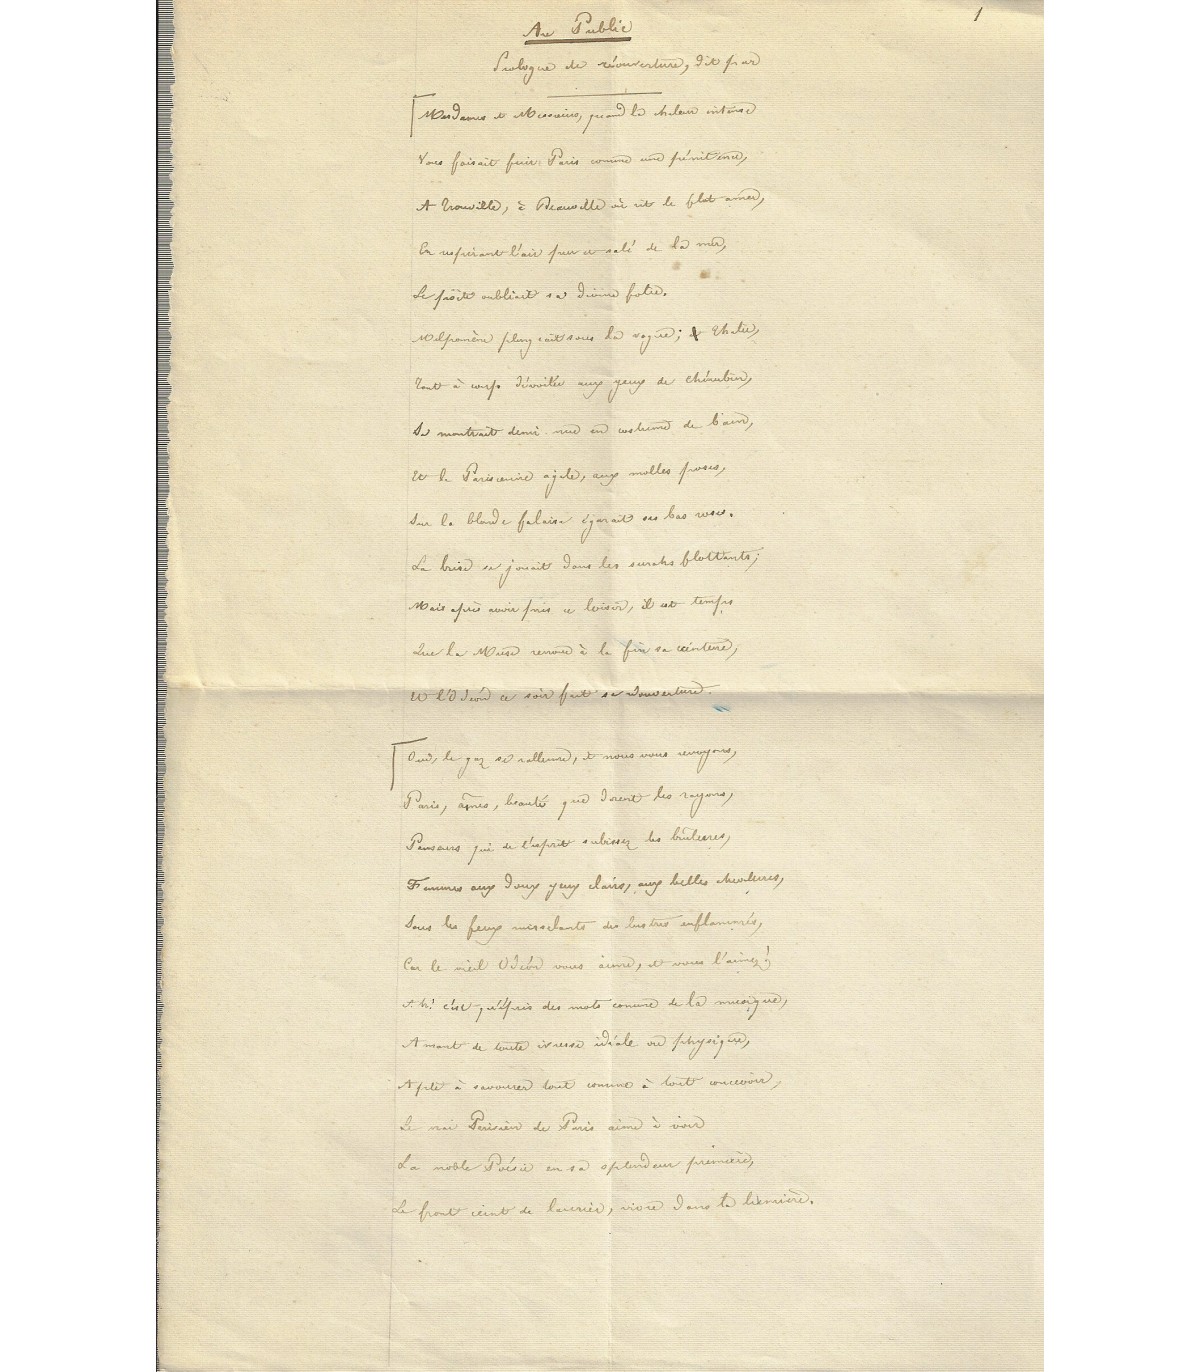 1
Au Public
Prologue de réouverture, dit par
Mesdames et Messieurs, quand la chaleur intense
Vous faisait fuir Paris comme une pénitence,
A Trouville, à Deauville où rit le flot amer,
En respirant l'air pur et salé de la mer,
Le poëte oubliait sa divine folie.
Melpomène plongeait sous la vague; et Thalie,
Tout à coup dévoilée aux yeux de Chérubin,
Se montrait demi-nue en costume de bain,
Et la Parisienne agile, aux molles poses,
Sur la blonde falaise égarait ses bas roses.
La brise se jouait dans les surahs flottants;
Mais après avoir pris ce loisir, il est temps
Que la Muse renoue à la fin sa ceinture,
Et l'Odéon ce soir fait sa réouverture.
Oui, le gaz se rallume, et nous vous revoyons,
Paris, âmes, beautés que dorent les rayons,
Penseurs qui de l'esprit subissez les brûlures,
Femmes aux doux yeux clairs, aux belles chevelures,
Sous les feux ruisselants des lustres enflammés,
Car le vieil Odéon vous aime, et vous l'aimez!
Ah! c'est qu'épris des mots comme de la musique,
Amant de toute ivresse idéale ou physique,
Apte à savourer tout comme à tout concevoir,
Le vrai Parisien de Paris aime à voir
La noble Poésie en sa splendeur première,
Le front ceint de laurier, vivre dans la lumière.